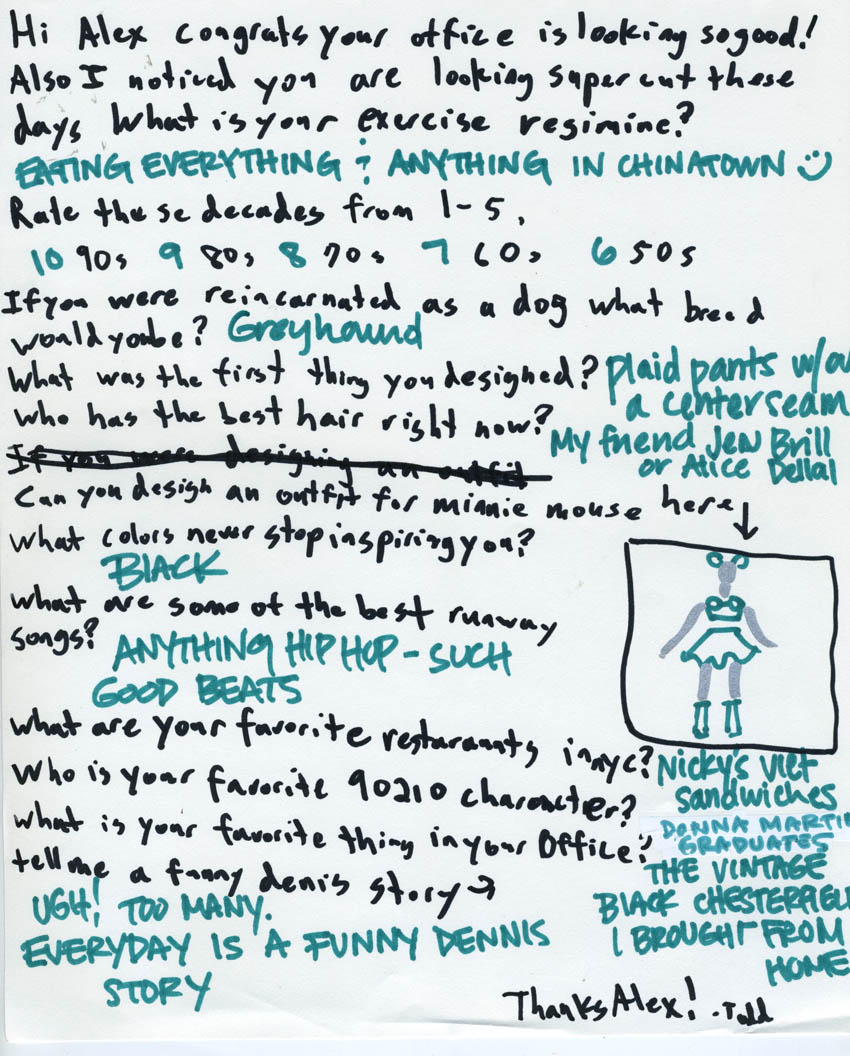 Hi Alex congrats your office is looking so good!
Also I noticed you are looking super cut these
days What is your exercise regimine?
EATING EVERYTHING & ANYTHING IN CHINATOWN
Rate these decades from 1-5.
10 90s 9 80s 8 70s 7 60s 6 50s
If you were reincarnated as a dog what breed
would you be? Greyhound
What was the first thing you designed? plaid pants w/ou
a center seam
who has the best hair right now?
My friend Jen Brill
or Alice Dellal
If you were designing an outfit
Can you design an outfit for minnie mouse here
what colors never stop inspiring you?
BLACK
what are some of the best runway
songs? ANYTHING HIP HOP - SUCH
GOOD BEATS
what are your favorite restaraunts in nyc? Nicky's Viet
sandwiches
Who is your favorite 90210 charancter?
DONNA MARTIN
GRADUATES
what is your favorite thing in your Office?
THE VINTAGE
BLACK CHESTERFIELD
I BROUGHT FROM
HOME
tell me a funny denis story →
UGH! TOO MANY.
EVERYDAY IS A FUNNY DENNIS
STORY
Thanks Alex! -Todd